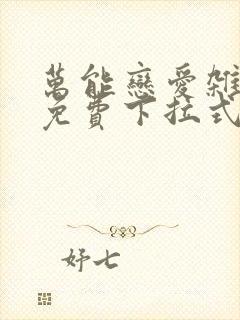 萬能戀愛雜
免費下拉式
妤七